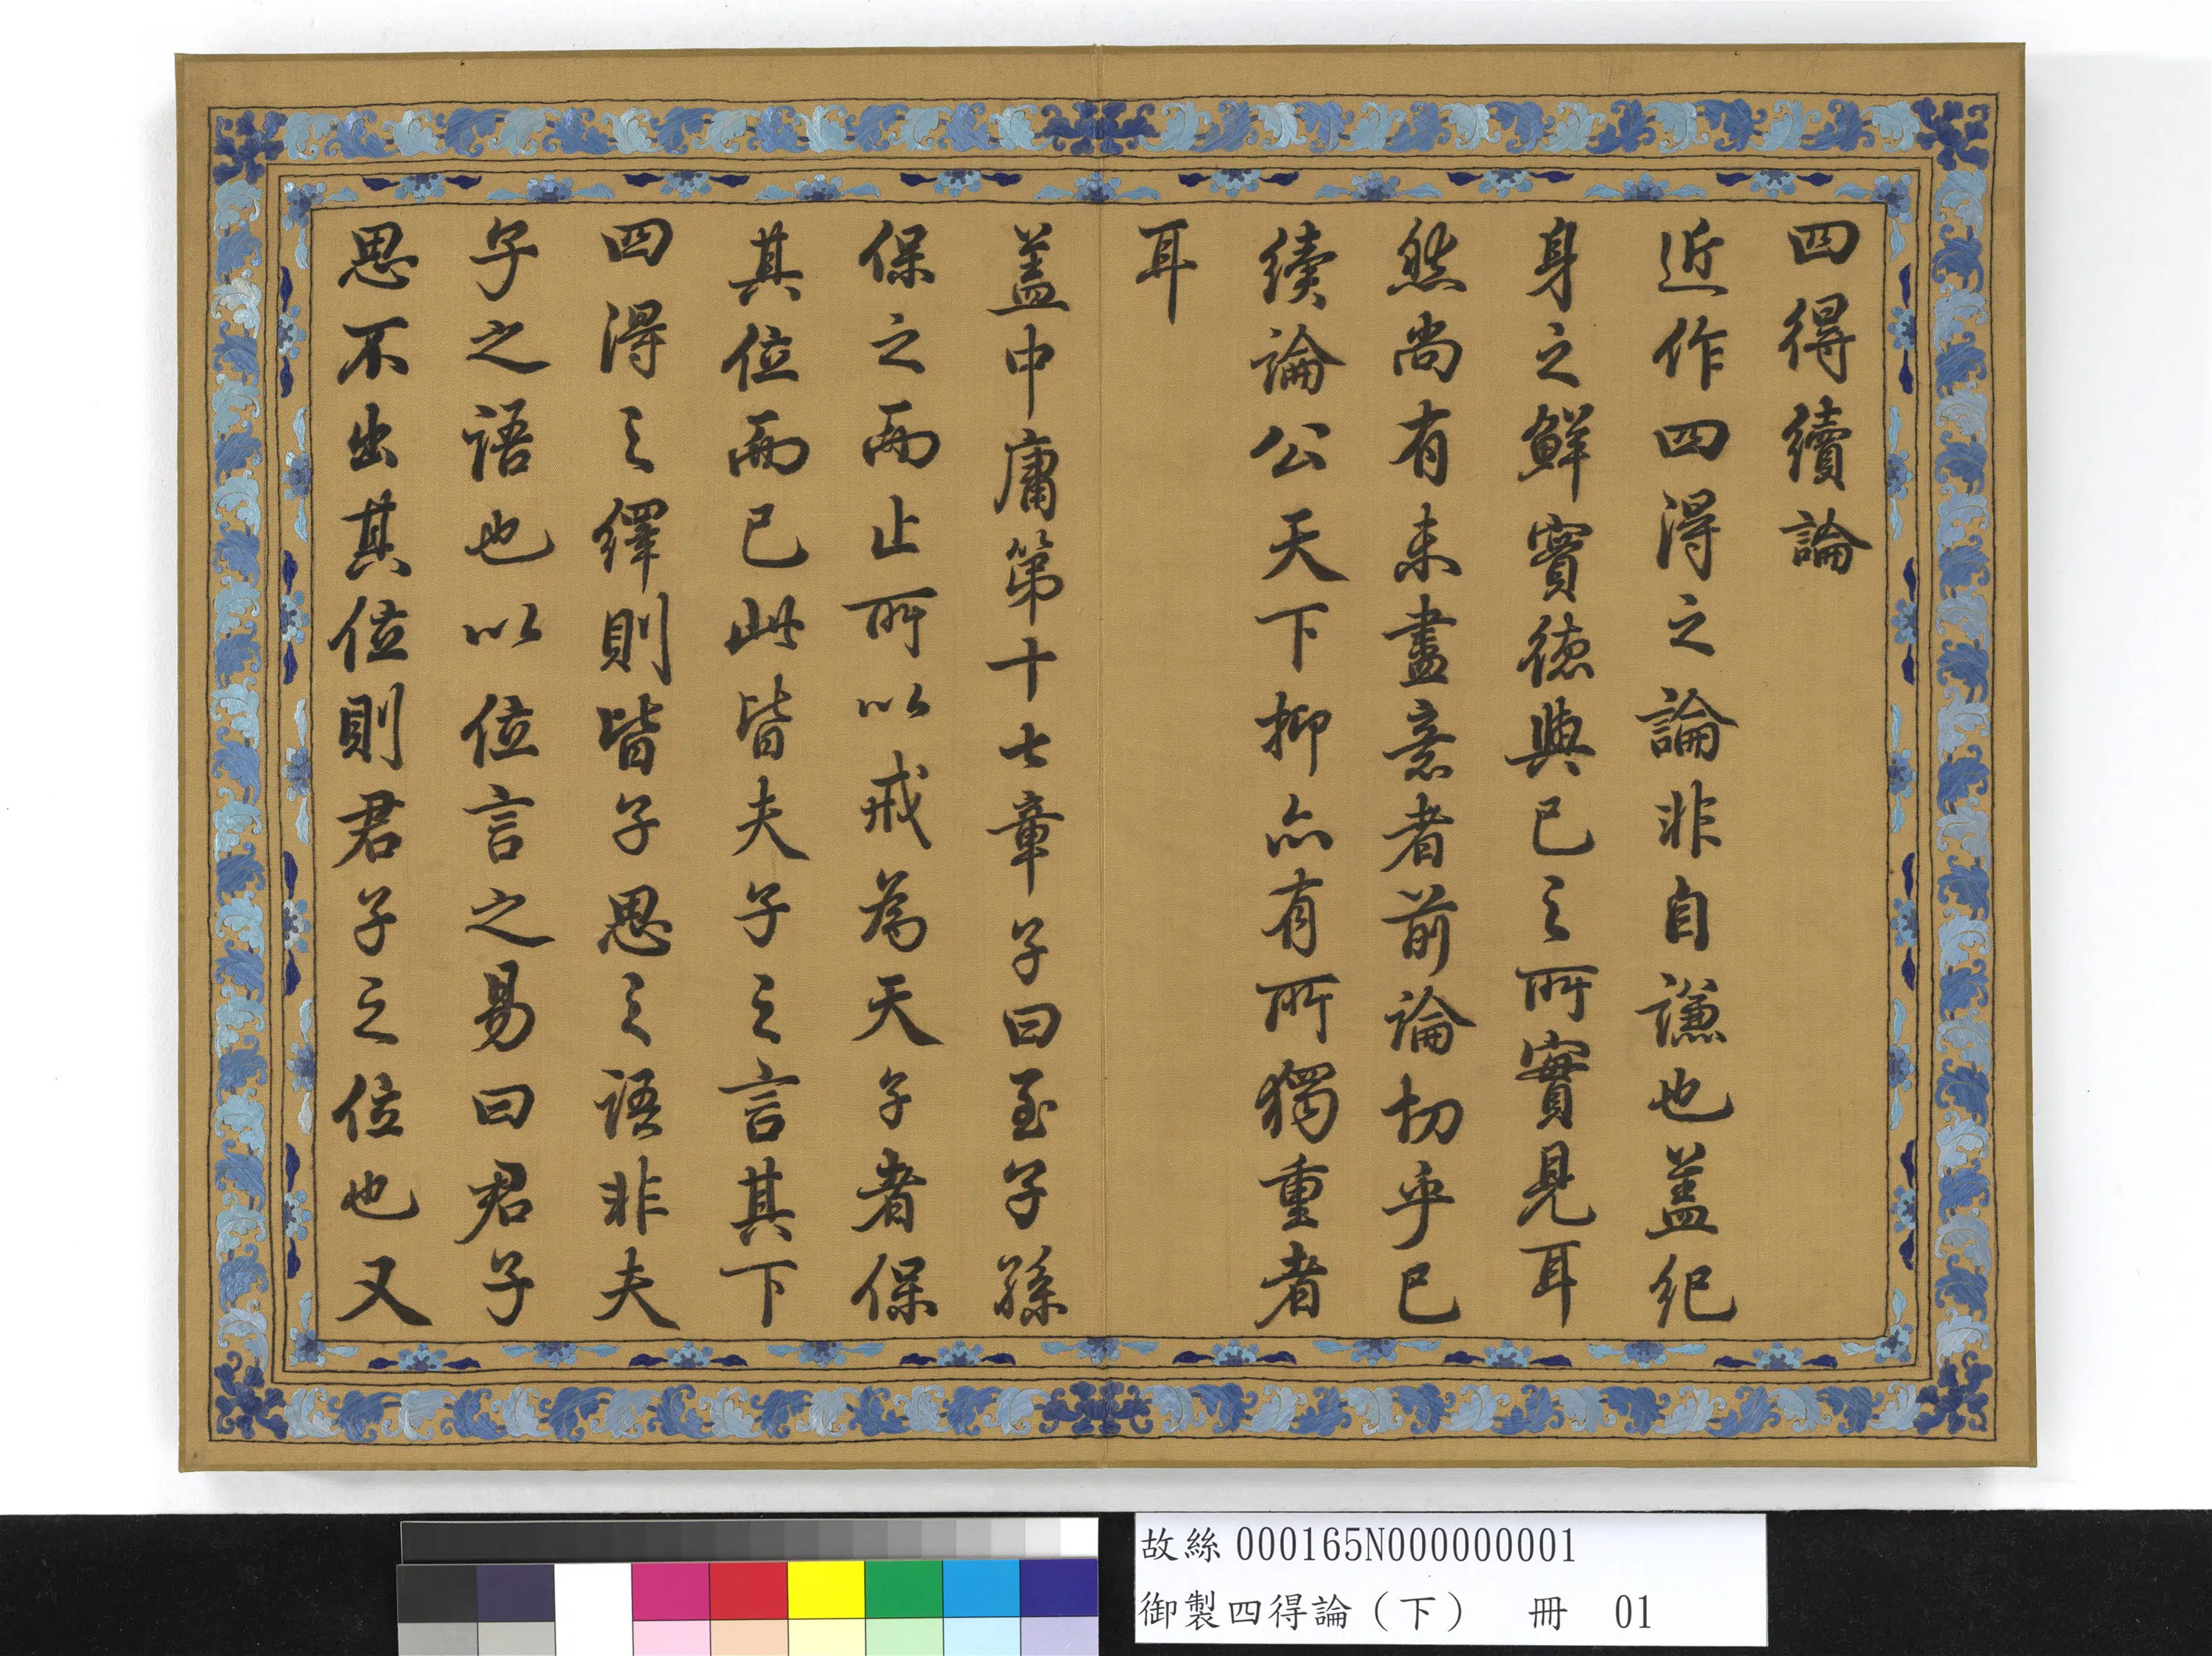 四得續論
近作四得之論非自謙也蓋紀
身之鮮實德與已之所實見耳
然尚有未盡意者前論切乎已
續論公天下抑亦有所獨重者
耳
蓋中庸第十七章子曰至子孫
保之而止所以戒為天子者保
其位而已此皆夫子之言其下
四得之繹則皆子思之語非夫
子之語也以位言之易曰君子
思不出其位則君子之位也又
故絲000165N000000001
御製四得論（下） 冊 01